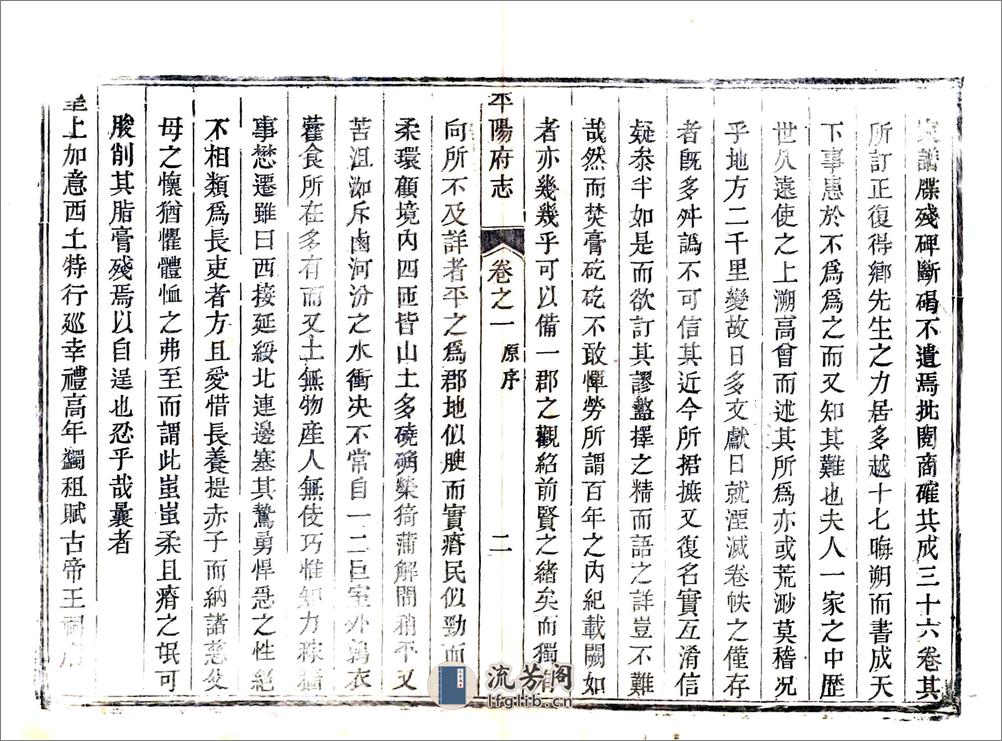 家譜牒殘碑斷碣不遺焉批閱商確共成三十六卷其
所訂正復得鄉先生之力居多越十七晦朔而書成天
下事患於不為為之而又知其難也夫人一家之中歷
世久遠使之上溯高曾而述其所為亦或荒渺莫稽况
乎地方二千里變故日多文獻日就湮滅卷帙之僅存
者既多舛譌不可信其近今所捃摭又復名實互淆信
疑叅半如是而欲訂其謬盭擇之精而語之詳豈不難
哉然而焚膏矻矻不敢憚勞所謂百年之內紀載闕如
者亦幾幾乎可以備一郡之觀紹前賢之緒矣而獨有
平陽府志 卷之一 原序 二
向所不及詳者平之為郡地似腴而實瘠民似勁而
柔環顧境內四匝皆山土多磽确榮猗蒲解間稍平又
苦沮洳斥鹵河汾之水衝决不常自一二巨室外鶉衣
藿食所在多有而又土無物產人無伎巧惟知力稼穡
事懋遷雖曰西接延綏北連邊塞其驁勇悍惡之性絕
不相類為長吏者方且愛惜長養提赤子而納諸慈父
母之懷猶懼體恤之弗至而謂此蚩蚩柔且瘠之氓可
朘削其脂膏殘焉以自逞也忍乎哉曩者
上加意西土特行廵幸禮高年蠲租賦古帝王祠廟
流芳阁
lfglib.cn